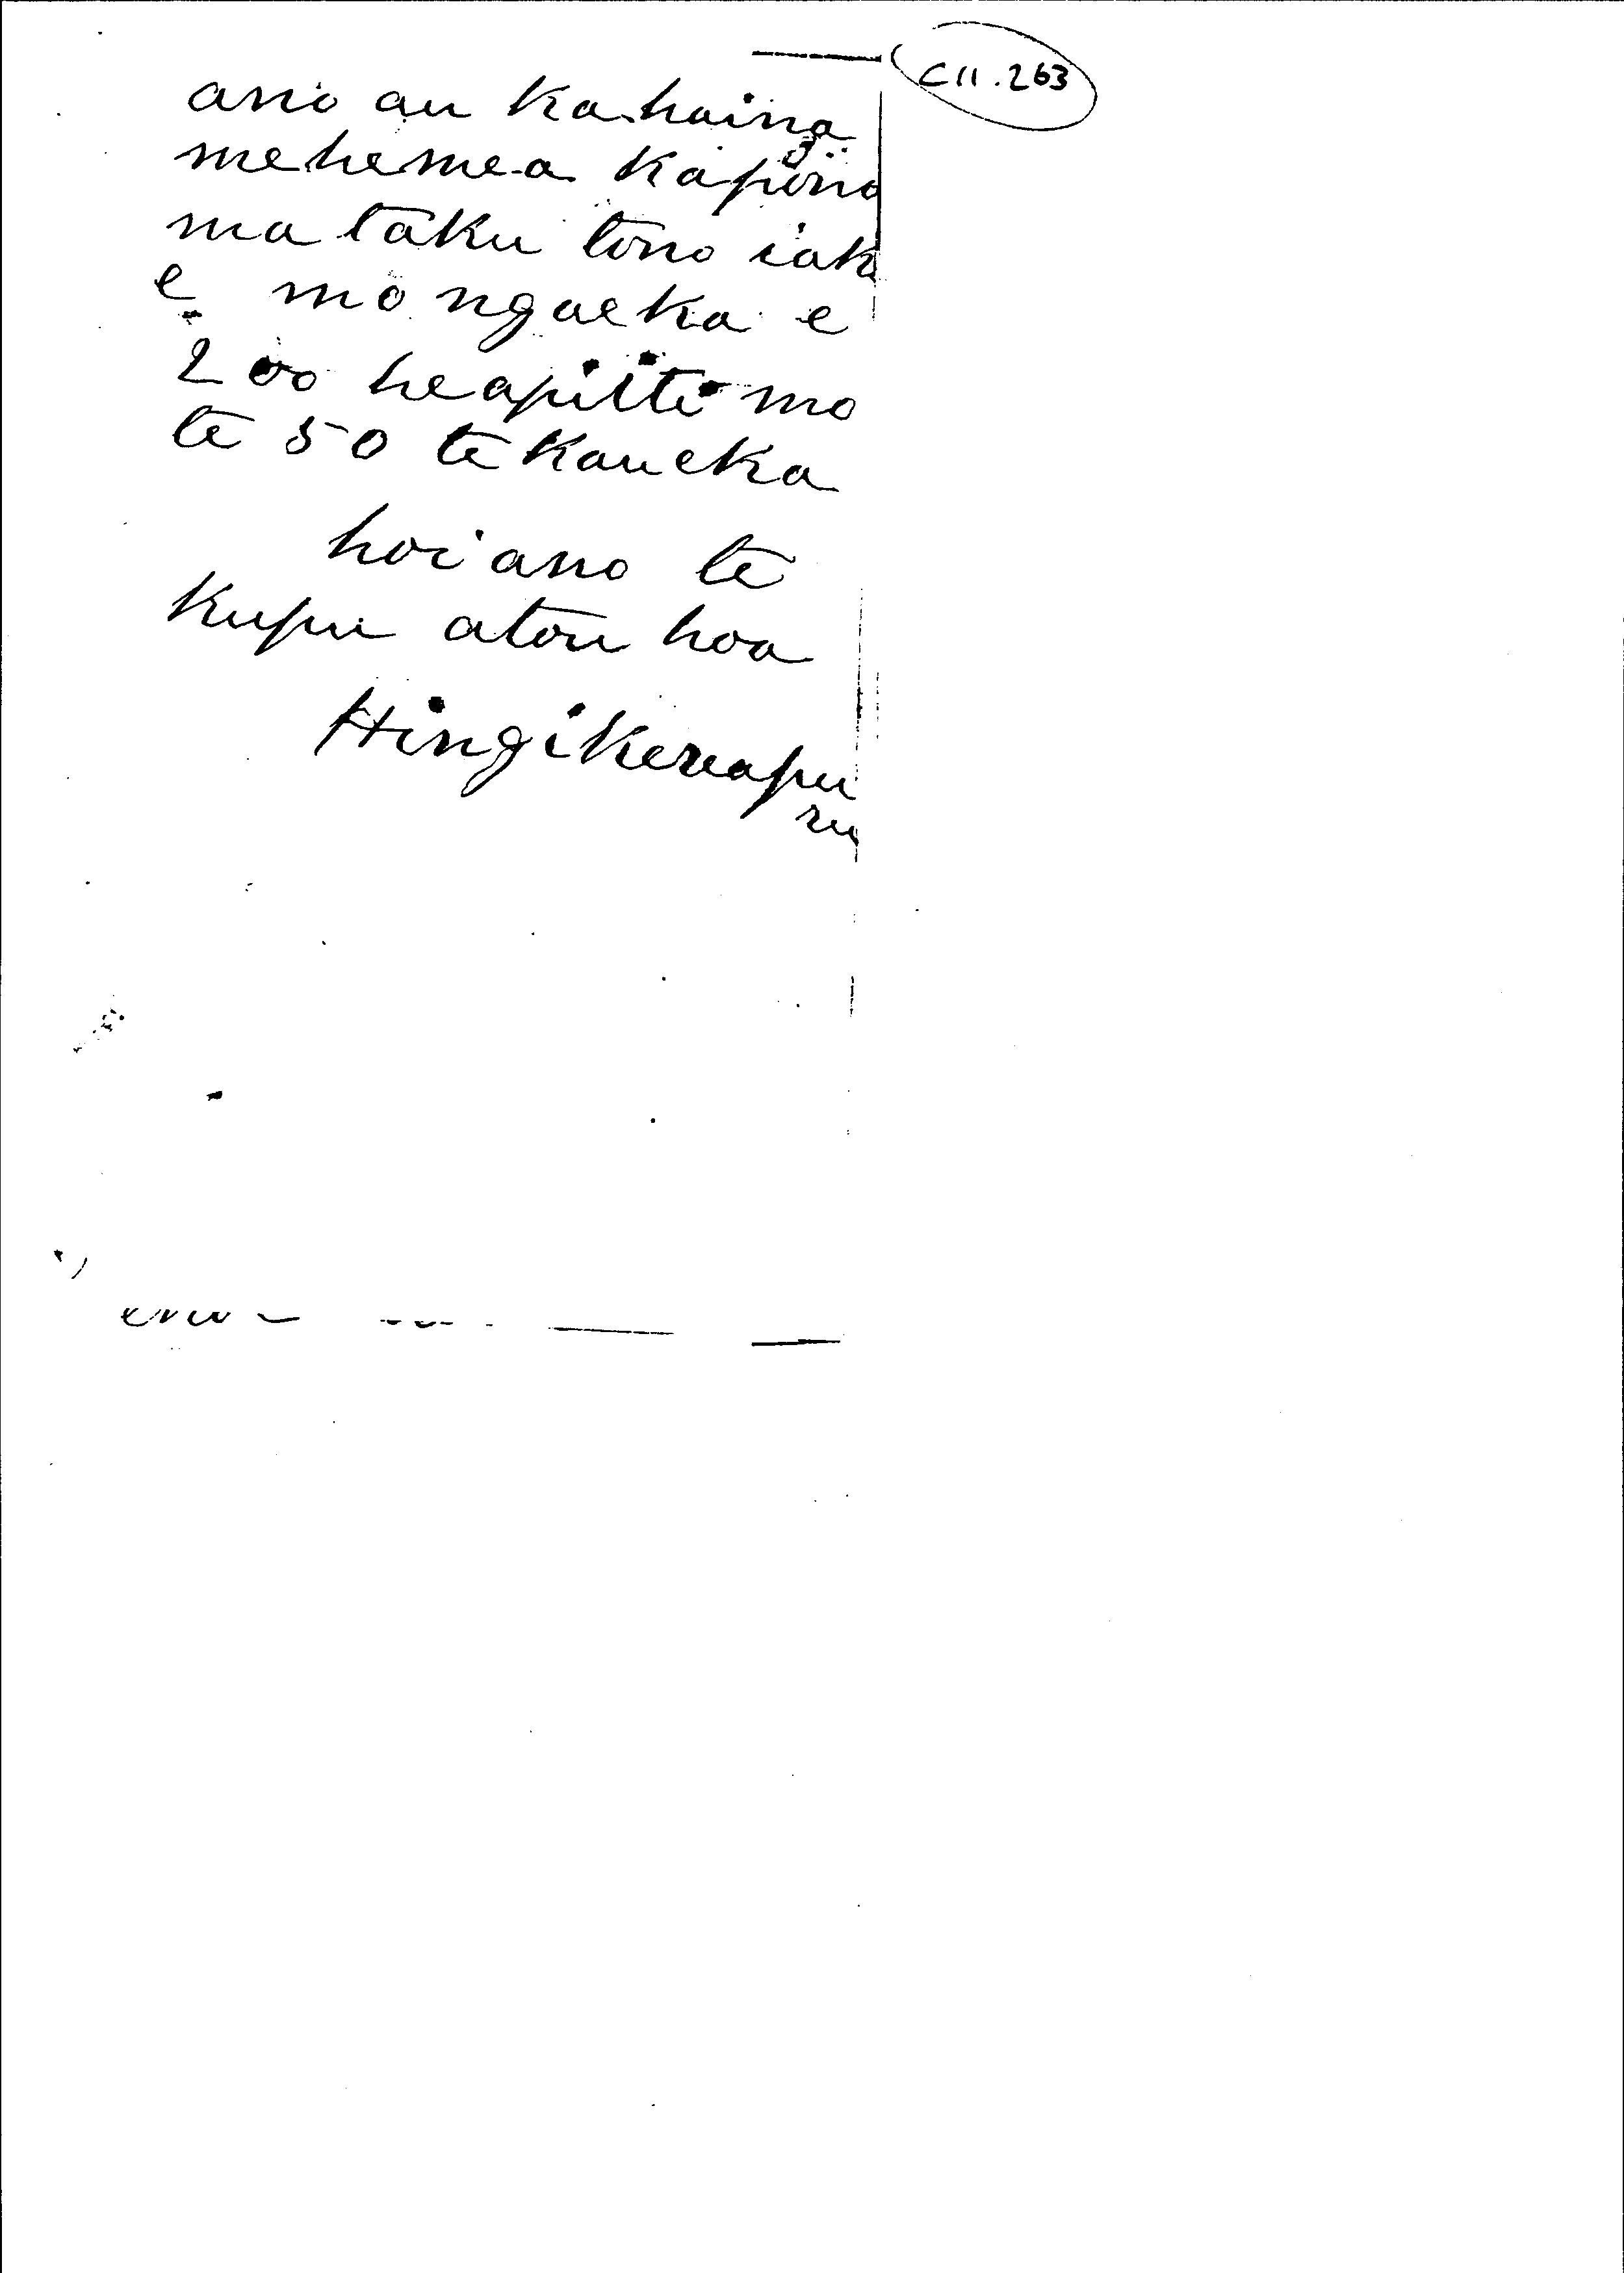 C11.263
ano au ka hainga
mehemea kapono
ma taku tono iak
e mo ngaeka e
200 heapiiti mo
te 50 te kaueka
hoi ano te
kupu atou hoa
Hingikereapu
ru